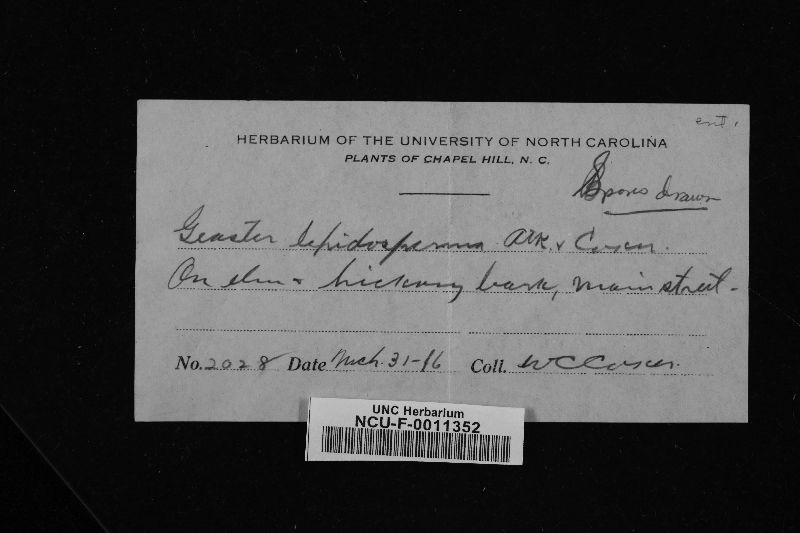 ent.
HERBARIUM OF THE UNIVERSITY OF NORTH CAROLINA
PLANTS OF CHAPEL HILL, N. C.
Spores drawn
Geaster lepidospermus Atk. & Coker.
On elm & hickory bark, main street.
No. 2028 Date Mch. 31-16 Coll. W C Coker.
UNC Herbarium
NCU-F-0011352